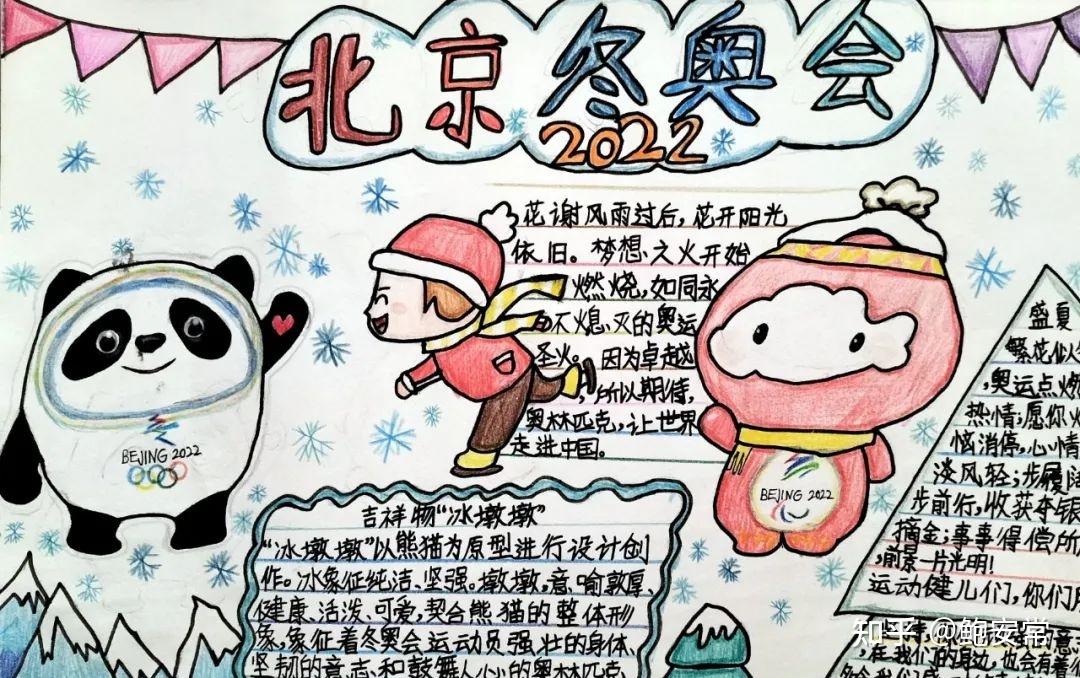 北京冬奥会
2022
花谢风雨过后，花开阳光
依旧。梦想之火开始
燃烧，如同永
不熄灭的奥运
圣火。因为卓越
，所以期待，
奥林匹克，让世界
走进中国。
BEIJING 2022
BEIJING 2022
吉祥物“冰墩墩”
“冰墩墩”以熊猫为原型进行设计创
作。冰象征纯洁、坚强。墩墩，意喻敦厚、
健康、活泼、可爱，契合熊猫的整体形
象，象征着冬奥会运动员强壮的身体、
坚韧的意志、和鼓舞人心的奥林匹克
盛夏
繁花似
，奥运点燃
热情；愿你
恼消停，心情
淡风轻；步履
步前行，收获夺银
摘金；事事得偿所
，前景一片光明！
运动健儿们，你们
，在我们的身边，也会有着
知乎 @鲍安常